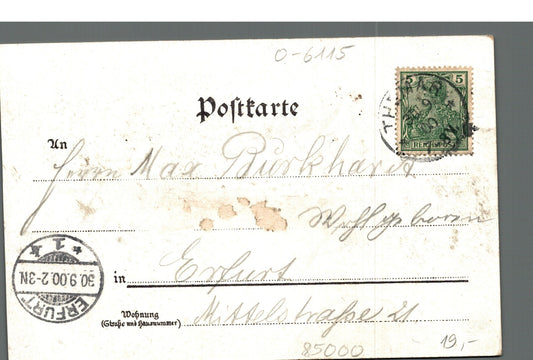 O-6115
5 5
REICHSPOST
THEMAR
Postkarte
An
Herrn Max Burkhardt
Wohlgeboren
in Erfurt
Wohnung
(Straße und Hausnummer)
Mittelstraße 21
ERFURT
30.9.00.2-3N
* 1 k
85000
19,-